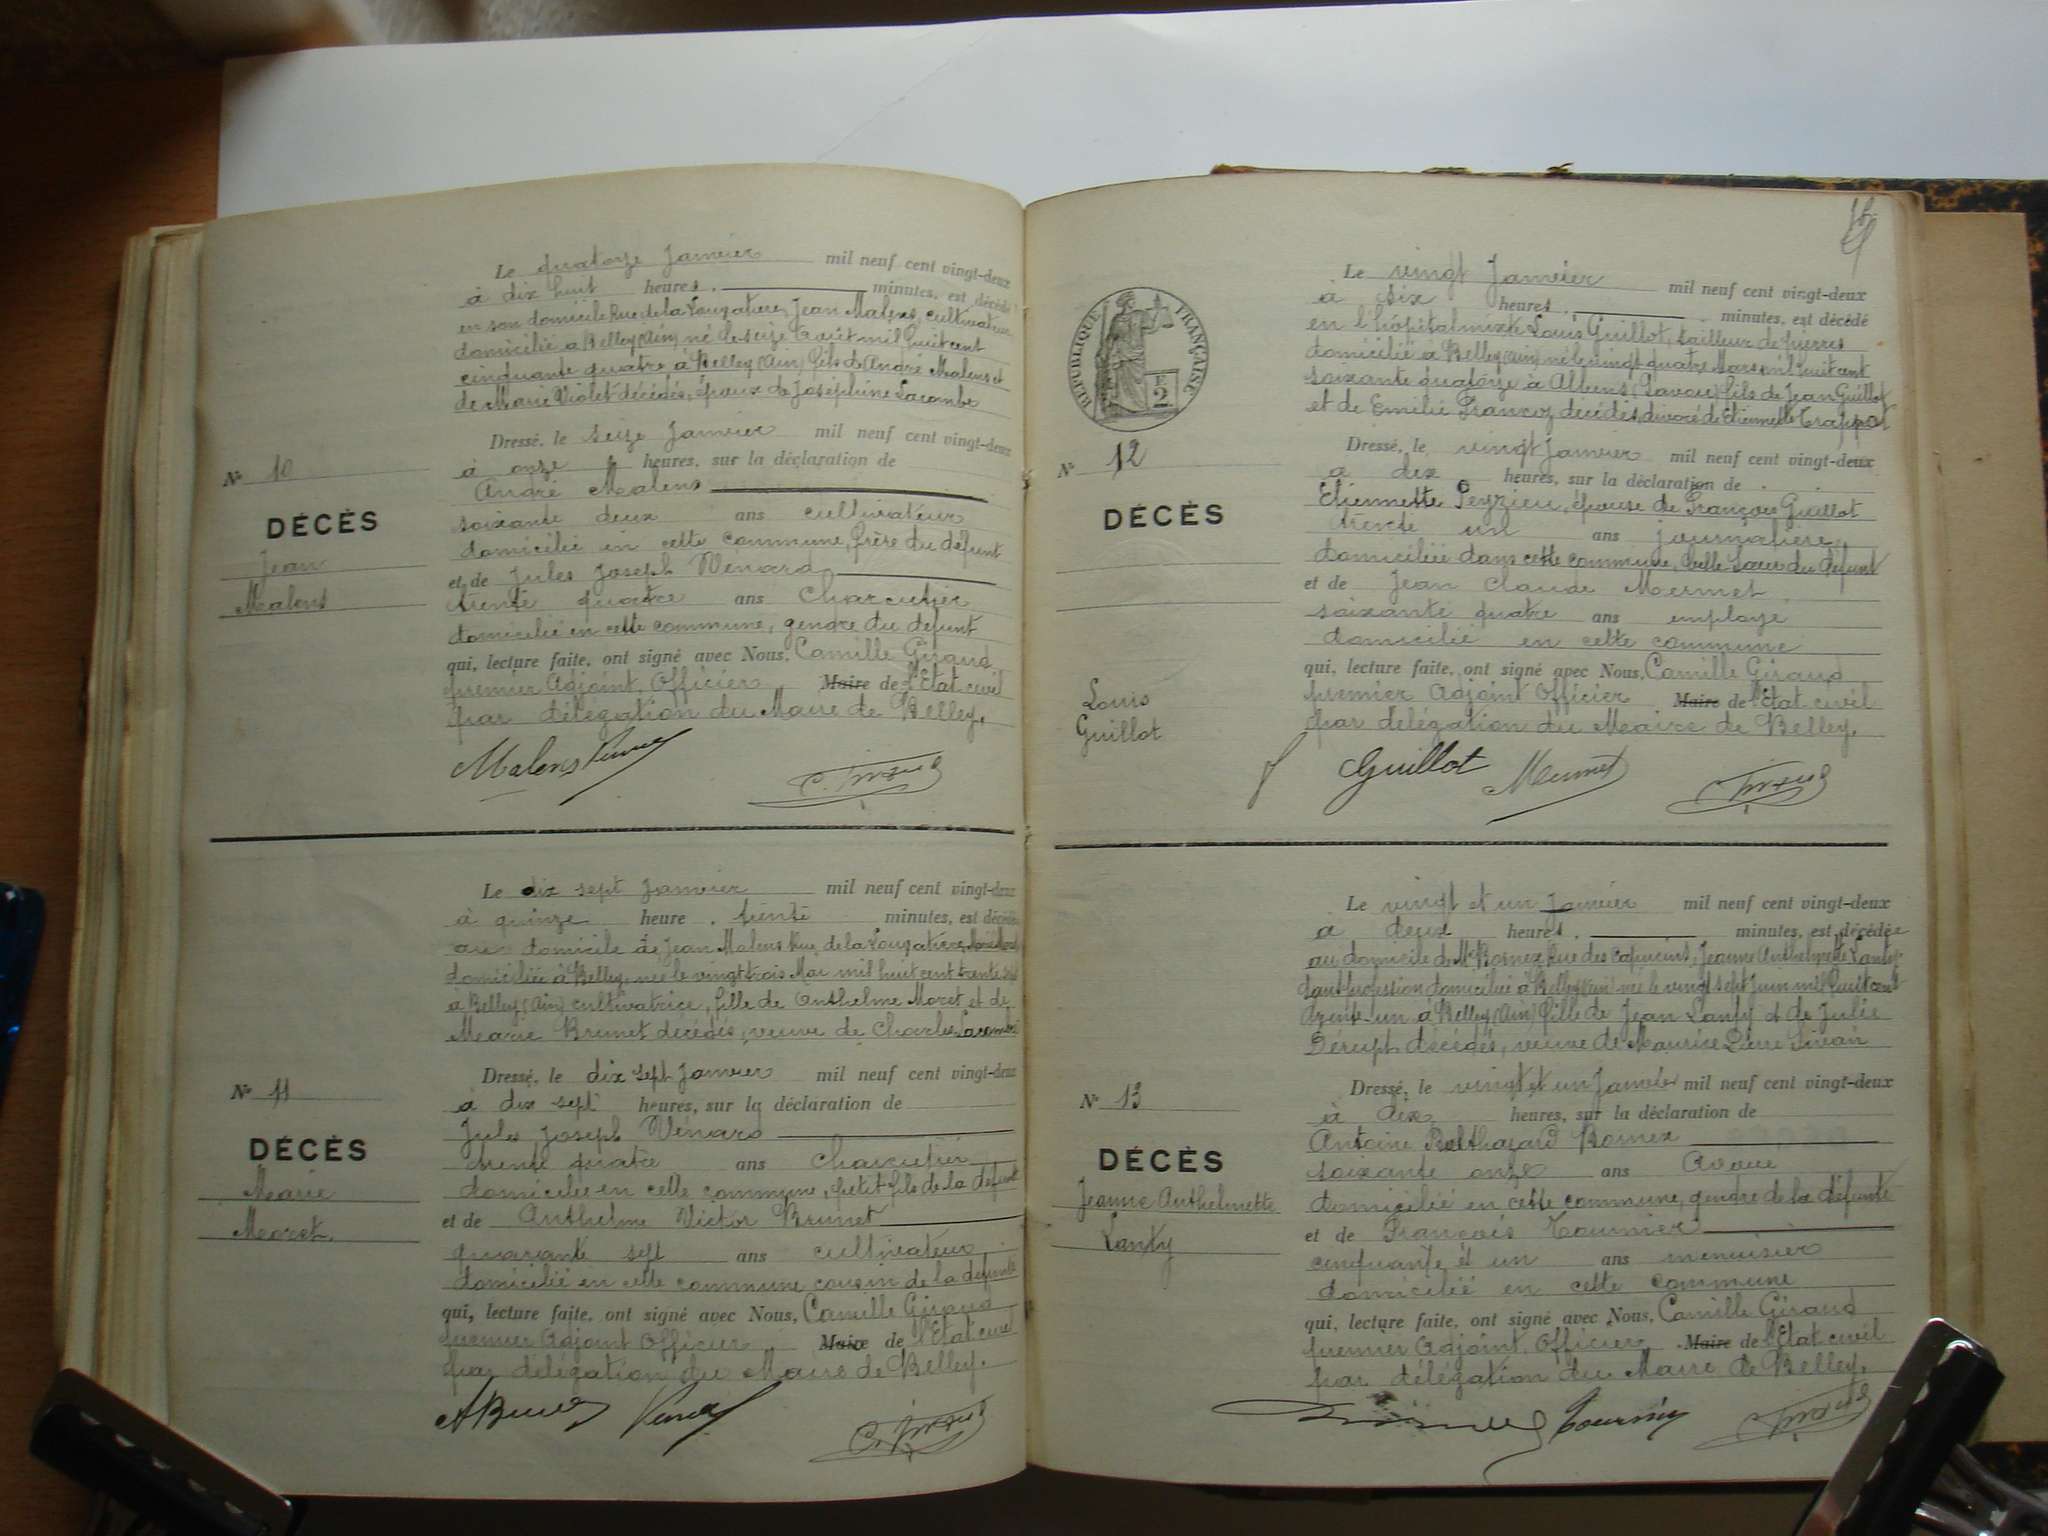 Le quatorze Janvier mil neuf cent vingt-deux
à dix huit heures, minutes, est décédé
en son domicile Rue de la Jean Malens, cultivateur
domicilié à Belley (Ain) né le seize Août mil huit cent
cinquante quatre à Belley (Ain) fils de André Malens et
de Marie Violet décédés, époux de Joséphine Lacombe
Dressé, le seize Janvier mil neuf cent vingt-deux
à onze heures, sur la déclaration de
André Malens
soixante deux ans cultivateur
domicilié en cette commune, frère du défunt
et de Jules Joseph Vénard
trente quatre ans Charcutier
domicilié en cette commune, gendre du défunt
qui, lecture faite, ont signé avec Nous, Camille Giraud
premier Adjoint, Officier Maire de l'Etat civil
par délégation du Maire de Belley.
Nº 10
DÉCÈS
Jean
Malens
Malens
C. Giraud
Le dix sept Janvier mil neuf cent vingt-deux
à quinze heure, trente minutes, est décédée
au domicile de Jean Malens Rue de la Marie Moret
domiciliée à Belley, née le vingt trois Mai mil huit cent trente
à Belley (Ain) cultivatrice, fille de Anthelme Moret et de
Marie Brunet décédés, veuve de Charles Lacombe
Dressé, le dix sept Janvier mil neuf cent vingt-deux
à dix sept heures, sur la déclaration de
Jules Joseph Vénard
trente quatre ans Charcutier
domicilié en cette commune, petit fils de la défunte
et de Anthelme Victor Brunet
quarante sept ans cultivateur
domicilié en cette commune cousin de la défunte
qui, lecture faite, ont signé avec Nous, Camille Giraud
premier Adjoint Officier Maire de l'Etat civil
par délégation du Maire de Belley.
Nº 11
DÉCÈS
Marie
Moret
C. Giraud
RÉPUBLIQUE FRANÇAISE
2
Le vingt Janvier mil neuf cent vingt-deux
à six heures, minutes, est décédé
en l'hôpital mixte Louis Guillot, tailleur de pierres
domicilié à Belley (Ain) né le vingt quatre Mars mil huit cent
soixante quatorze à Albens (Savoie) fils de Jean Guillot
et de Emilie Francoz décédés, divorcé de Etiennette Trappot
Dressé, le vingt Janvier mil neuf cent vingt-deux
à dix heures, sur la déclaration de
Etiennette Peyzieu, épouse de François Guillot
trente un ans journalière
domiciliée dans cette commune, belle sœur du défunt
et de Jean Claude Mermet
soixante quatre ans employé
domicilié en cette commune
qui, lecture faite, ont signé avec Nous, Camille Giraud
premier Adjoint Officier Maire de l'Etat civil
par délégation du Maire de Belley.
Nº 12
DÉCÈS
Louis
Guillot
Guillot Mermet Giraud
Le vingt et un Janvier mil neuf cent vingt-deux
à deux heures, minutes, est décédée
au domicile de Mr Rue des Capucins, Jeanne Anthelmette
sans profession domiciliée à Belley (Ain) née le vingt sept Juin mil huit cent
trente-un à Belley (Ain) fille de Jean et de Julie
décédés, veuve de Maurice Pierre
Dressé, le vingt et un Janvier mil neuf cent vingt-deux
à dix heures, sur la déclaration de
Antoine Balthazard
soixante onze ans Avoué
domicilié en cette commune, gendre de la défunte
et de François Tournier
cinquante et un ans menuisier
domicilié en cette commune
qui, lecture faite, ont signé avec Nous, Camille Giraud
premier Adjoint, Officier Maire de l'Etat civil
par délégation du Maire de Belley.
Nº 13
DÉCÈS
Jeanne Anthelmette
Tournier Giraud